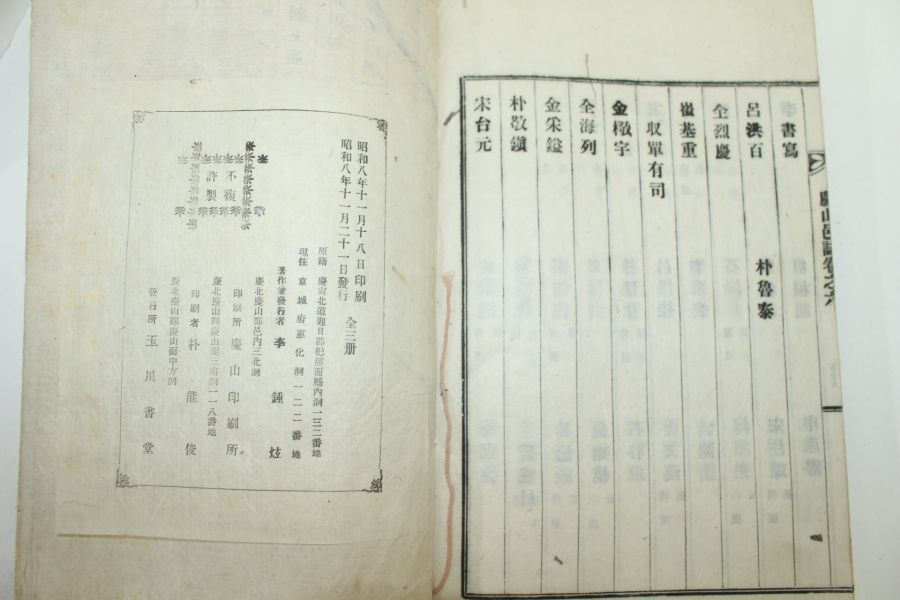 慶山邑誌卷之六
書寫
呂洪百
朴魯泰
全烈慶
崔基重
収單有司
金檄宇
全海列
金采鎰
朴敬鎭
宋台元
昭和八年十一月十八日印刷
昭和八年十一月二十一日發行
全三册
不許
複製
原籍 慶南北道迎日郡杞溪面縣內洞一三二番地
現住 京城府惠化洞一二二番地
著作兼發行者 李鍾炫
慶北慶山郡邑內三北洞
印刷所 慶山印刷所
慶北慶山郡慶山面三南洞一一八番地
印刷者 朴能俊
慶北慶山郡慶山面中方洞
發行所 玉川書堂